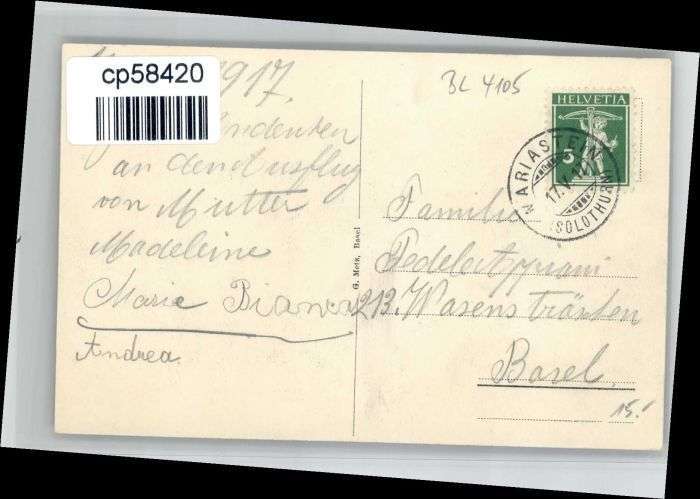 cp58420
1917.
BL 4105
HELVETIA
5
MARIASTEIN
17.V.17
(SOLOTHURN)
an den Ausflug
von Mutter
Madeleine
Marie Bianca
Andrea.
G. Metz, Basel
Familie
213. Wasenstrasse
Basel.
15.-